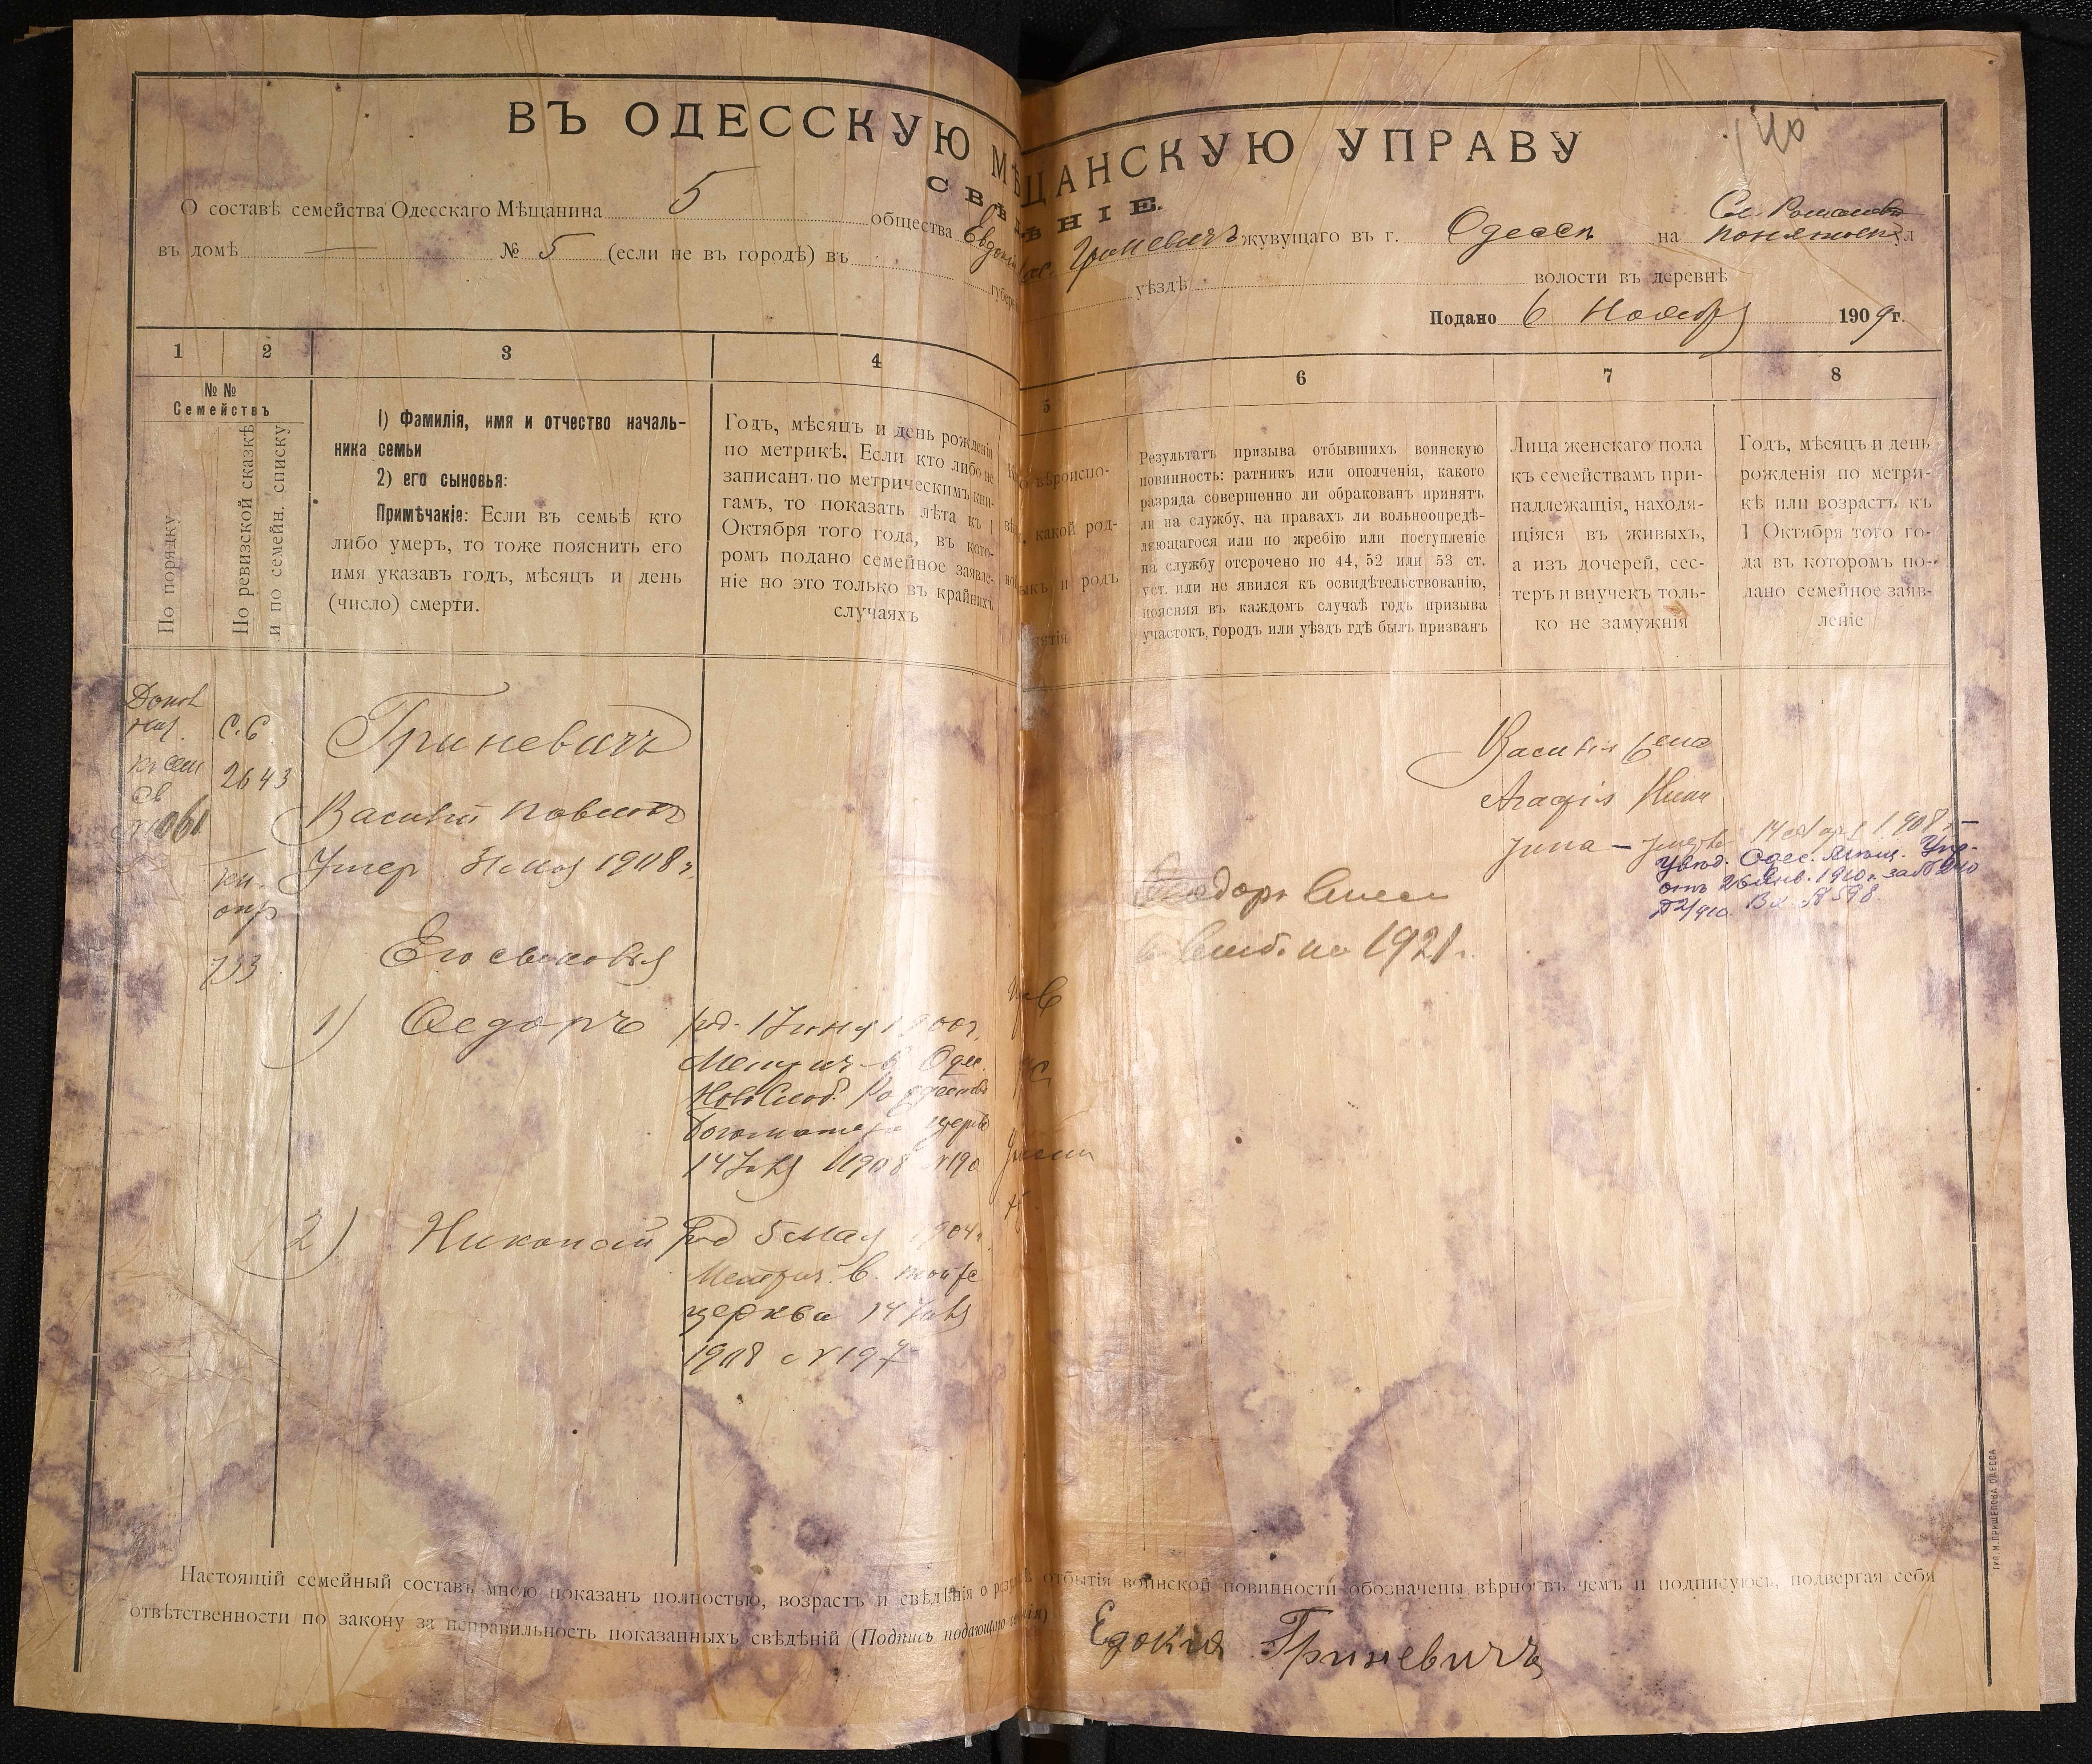 140
ВЪ ОДЕССКУЮ МѢЩАНСКУЮ УПРАВУ
СВѢДѢНІЕ.
О составѣ семейства Одесскаго Мѣщанина 5 общества Гриневичъ жувущаго въ г. Одессѣ на Сл. Романовка
въ домѣ — № 5 (если не въ городѣ) въ губер уѣздѣ волости въ деревнѣ
Подано 6 Ноября 1909 г.
1 2 3 4 5 6 7 8
№ №
Семействъ
По порядку
По ревизской сказкѣ
и по семейн. списку
1) Фамилія, имя и отчество началь-
ника семьи
2) его сыновья:
Примѣчаніе: Если въ семьѣ кто
либо умеръ, то тоже пояснить его
имя указавъ годъ, мѣсяцъ и день
(число) смерти.
Годъ, мѣсяцъ и день рожденія
по метрикѣ. Если кто либо не
записанъ по метрическимъ кни-
гамъ, то показать лѣта къ 1
Октября того года, въ кото-
ромъ подано семейное заявле-
ніе но это только въ крайнихъ
случаяхъ
вѣроиспо-
какой род-
и родъ
Результатъ призыва отбывшихъ воинскую
повинность: ратникъ или ополченія, какого
разряда совершенно ли обракованъ принятъ
ли на службу, на правахъ ли вольноопредѣ-
ляющагося или по жребію или поступленіе
на службу отсрочено по 44, 52 или 53 ст.
уст. или не явился къ освидѣтельствованію,
поясняя въ каждомъ случаѣ годъ призыва
участокъ, городъ или уѣздъ гдѣ былъ призванъ
Лица женскаго пола
къ семействамъ при-
надлежащія, находя-
щіяся въ живыхъ,
а изъ дочерей, сес-
теръ и внучекъ толь-
ко не замужнія
Годъ, мѣсяцъ и день
рожденія по метри-
кѣ или возрастъ къ
1 Октября того го-
да въ которомъ по-
дано семейное заяв-
леніе
С.С
2643
733
Гриневичъ
Василій Павловъ
Умер 31 Мая 1908 г.
Его сыновья
1) Ѳедоръ
род. 1 Іюня 1900 г.
Метрич. в Одес.
НовоСлоб. Рождество
Богоматери церкв
14 Janv 1908 №190
2) Николай
Род 5 Мая 1904 г.
Метрич. в. той же
церкви
1908 №197
Ѳеодоръ
1921 г.
Василія жена
Умерла 14 1908 г.
Увѣд. Одес. Мѣщ. Упр.
отъ 26 Янв. 1910 г. за №
Вх. № 598.
Настоящій семейный составъ мною показанъ полностью, возрастъ и свѣдѣнія о разрядѣ отбытія воинской повинности обозначены вѣрно въ чемъ и подписуюсь, подвергая себя
отвѣтственности по закону за неправильность показанныхъ свѣдѣній (Подпись подающаго
Едокия Гриневичъ
ТИП. М. ПРИЩЕПОВА ОДЕССА